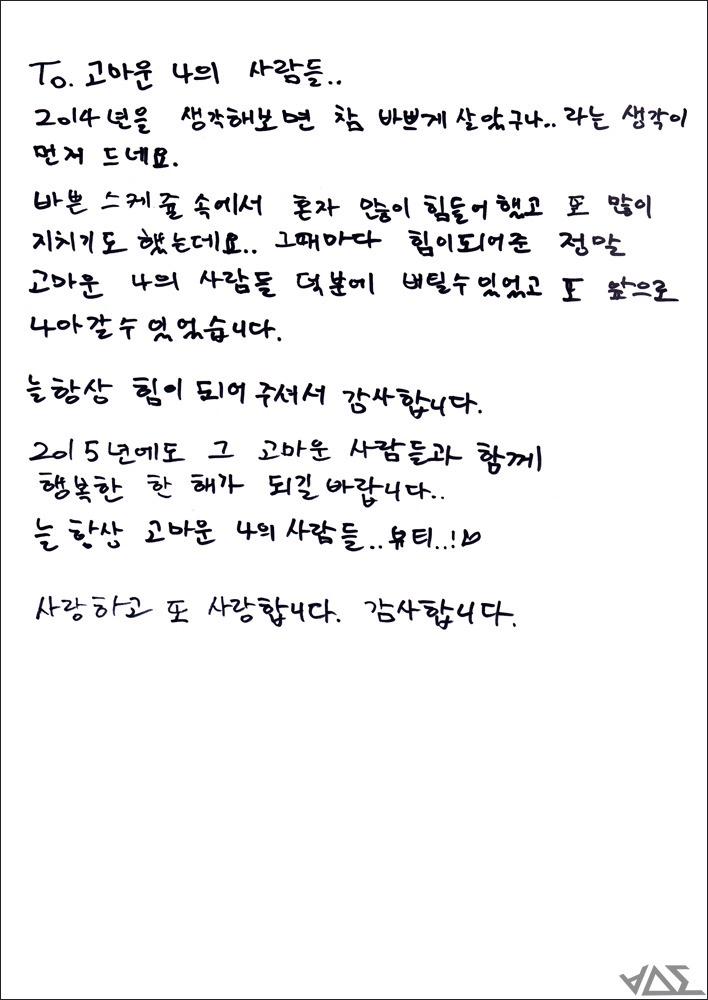 To. 고마운 나의 사람들..
2014년을 생각해보면 참 바쁘게 살았구나.. 라는 생각이
먼저 드네요.
바쁜 스케쥴 속에서 혼자 많이 힘들어 했고 또 많이
지치기도 했는데요.. 그때마다 힘이되어준 정말
고마운 나의 사람들 덕분에 버틸수있었고 또 앞으로
나아갈수 있었습니다.
늘 항상 힘이 되어 주셔서 감사합니다.
2015년에도 그 고마운 사람들과 함께
행복한 한 해가 되길 바랍니다..
늘 항상 고마운 나의 사람들.. 뷰티..!♡
사랑하고 또 사랑합니다. 감사합니다.